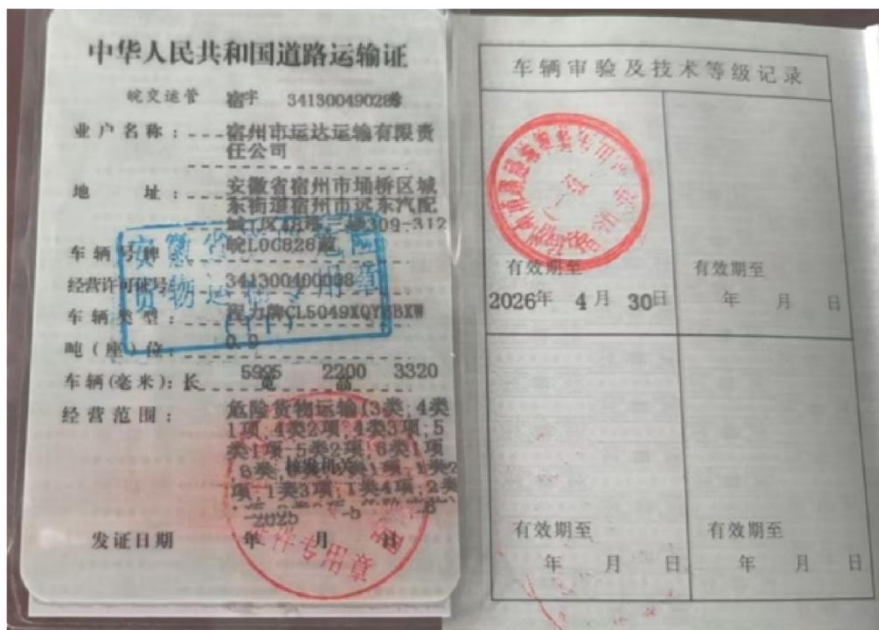 中华人民共和国道路运输证
皖交运管 宿字 341300490289号
业户名称： 宿州市运达运输有限责
任公司
地 址： 安徽省宿州市埇桥区城
东街道宿州市远东汽配
309-312
车辆号牌 皖L0C828
经营许可证号 341300400008
车辆类型： 程力牌CL5049XQY
吨(座)位： 0.9
车辆(毫米)：长 5995 宽 2200 高 3320
经营范围： 危险货物运输(3类,4类
1项,4类2项,4类3项,5
类1项,5类2项,6类1项
核发机关
项,1类3项,1类4项,2类
2025
发证日期 年 月 日
安徽省
货物运输专用章
证件专用章
车辆审验及技术等级记录
有效期至
2026年 4月 30日
有效期至
年 月 日
有效期至
年 月 日
有效期至
年 月 日